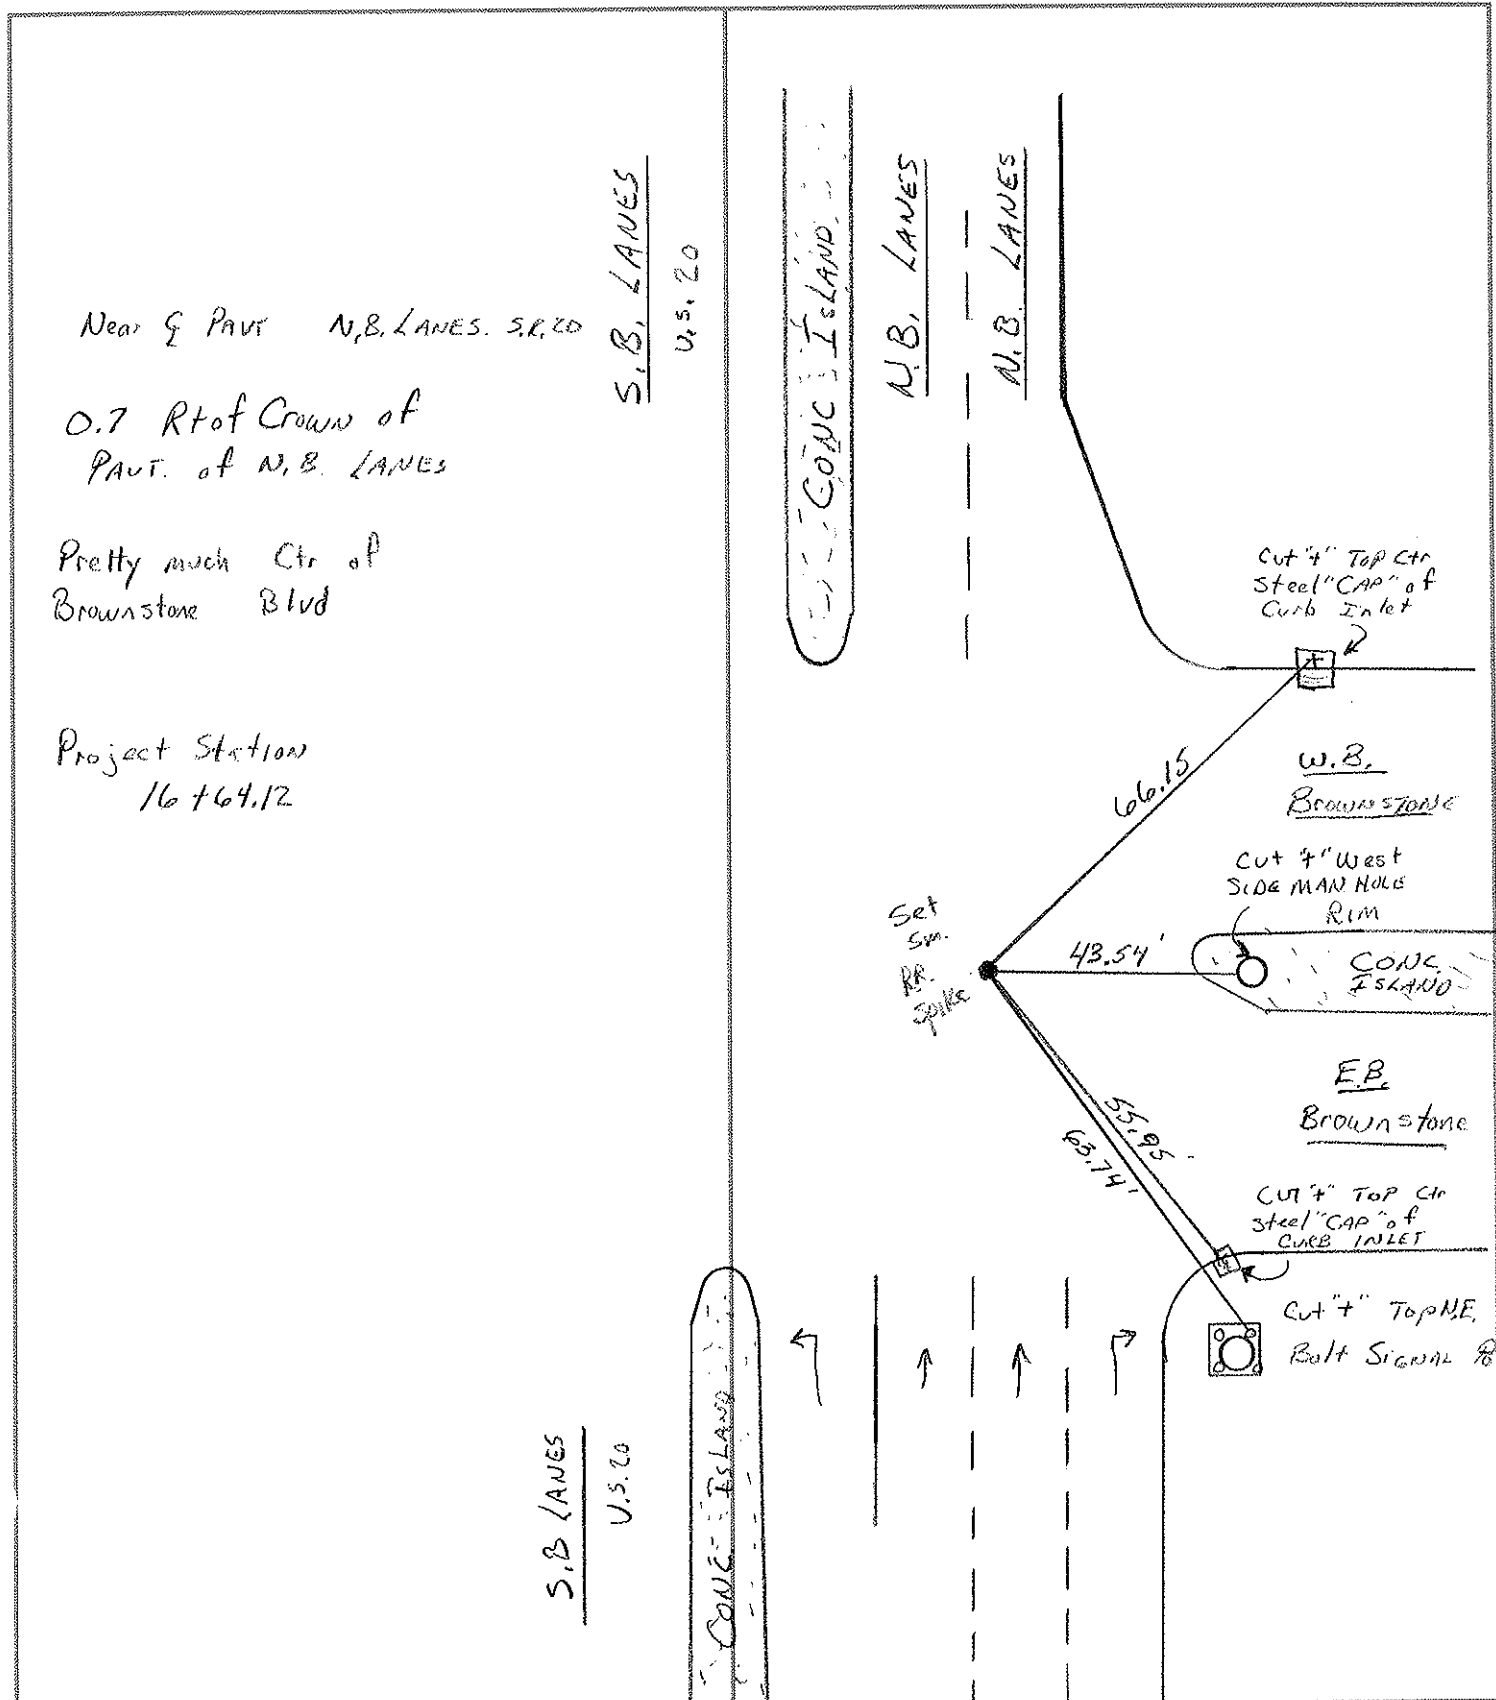 Near ℄ PAVT N.B. LANES. S.R. 20
0.7 Rt of Crown of
PAVT. of N.B. LANES
Pretty much Ctr of
Brownstone Blvd
Project Station
16+64.12
S.B. LANES
U.S. 20
CONC ISLAND
N.B. LANES
N.B. LANES
Cut "+" Top Ctr
Steel "CAP" of
Curb Inlet
66.15
W.B.
BROWNSTONE
Cut "+" West
SIDE MAN HOLE
RIM
Set
Sm.
RR.
Spike
43.54'
CONC.
ISLAND
E.B.
Brownstone
55.95'
63.74'
CUT "+" TOP Ctr
Steel "CAP" of
CURB INLET
Cut "+" Top N.E.
Bolt SIGNAL
S.B LANES
U.S. 20
CONC ISLAND